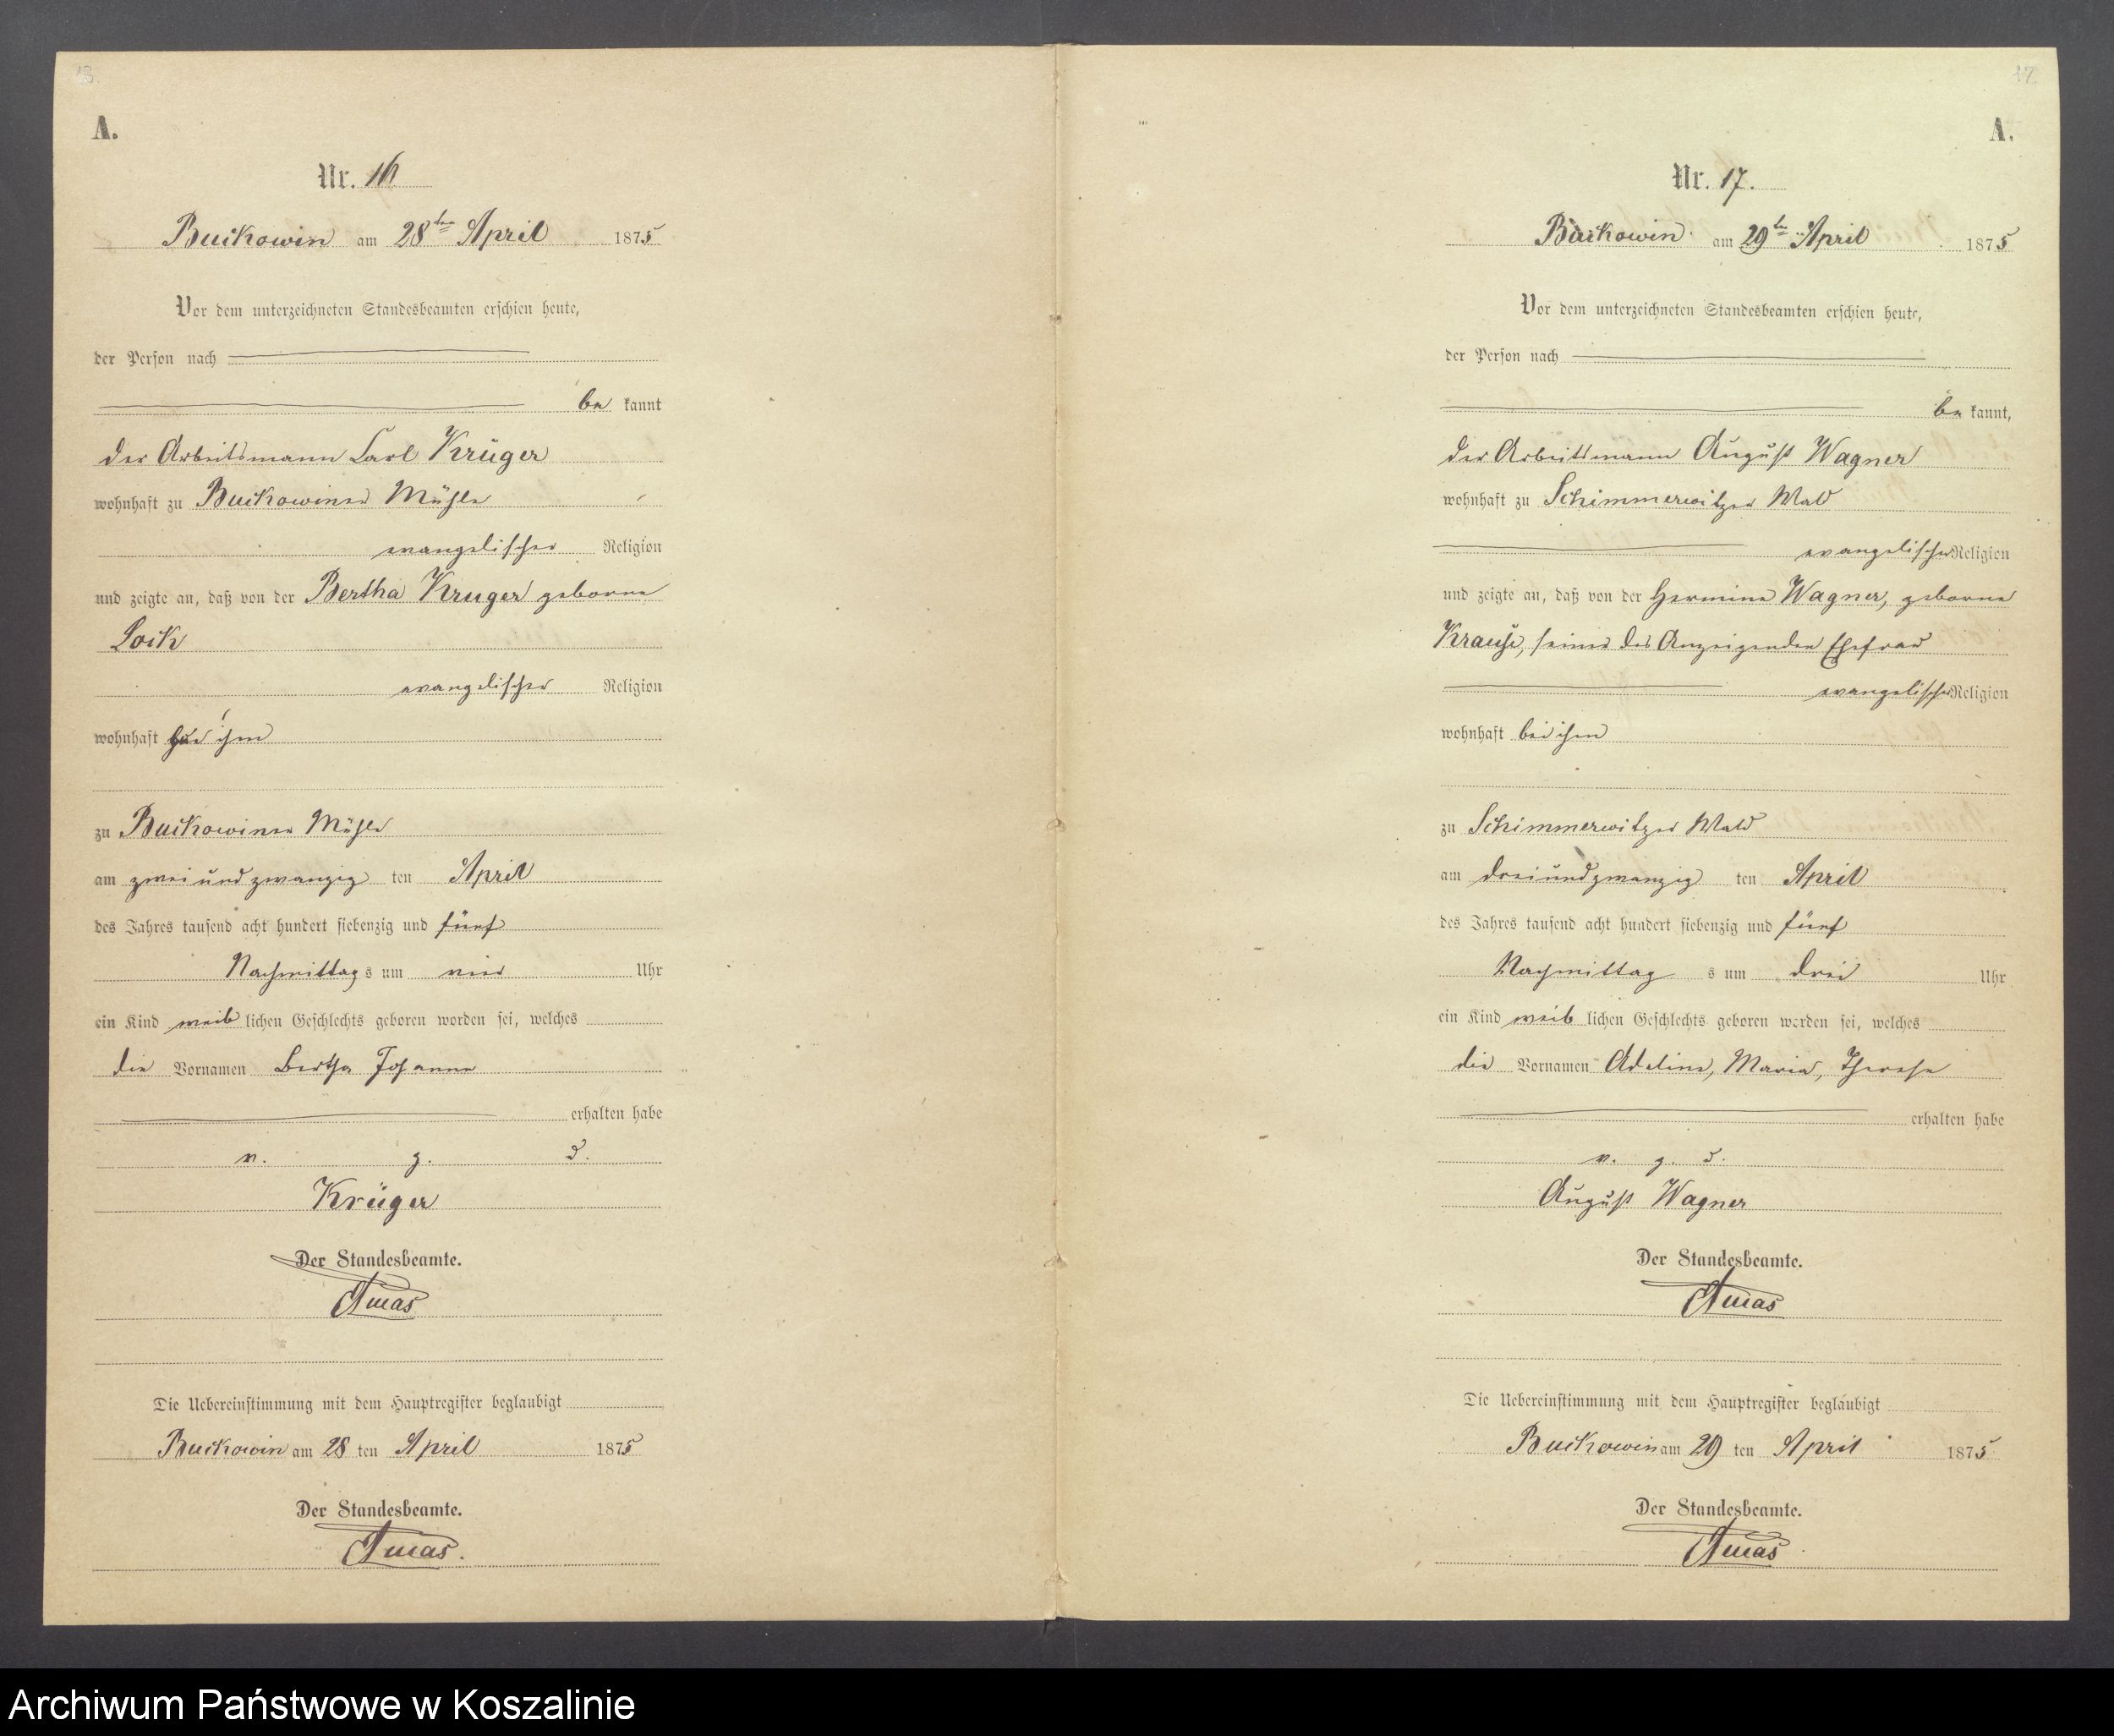 A.
Nr. 16
Buckowin am 28ten April 1875
Vor dem unterzeichneten Standesbeamten erschien heute,
der Person nach
be kannt
der Arbeitsmann Carl Krüger
wohnhaft zu Buckowiner Mühle
evangelischer Religion
und zeigte an, daß von der Bertha Kruger geborne
Lock
evangelischer Religion
wohnhaft bei ihm
zu Buckowiner Mühle
am zwei und zwanzig ten April
des Jahres tausend acht hundert siebenzig und fünf
Nachmittag s um vier Uhr
ein Kind weib lichen Geschlechts geboren worden sei, welches
die Vornamen Bertha Johanne
erhalten habe
v. g. u.
Krüger
Der Standesbeamte.
Die Uebereinstimmung mit dem Hauptregister beglaubigt
Buckowin am 28 ten April 1875
Der Standesbeamte.
17
A.
Nr. 17.
Buckowin am 29ten April 1875
Vor dem unterzeichneten Standesbeamten erschien heute,
der Person nach
be kannt,
der Arbeitsmann August Wagner
wohnhaft zu Schimmerwitzer Wald
evangelischer Religion
und zeigte an, daß von der Hermine Wagner, geborne
Krause, seiner des Anzeigenden Ehefrau
evangelischer Religion
wohnhaft bei ihm
zu Schimmerwitzer Wald
am drei und zwanzig ten April
des Jahres tausend acht hundert siebenzig und fünf
Nachmittag s um drei Uhr
ein Kind weib lichen Geschlechts geboren worden sei, welches
die Vornamen Adeline, Maria, Therese
erhalten habe
v. g. u.
August Wagner
Der Standesbeamte.
Die Uebereinstimmung mit dem Hauptregister beglaubigt
Buckowin am 29 ten April 1875
Der Standesbeamte.
Archiwum Państwowe w Koszalinie